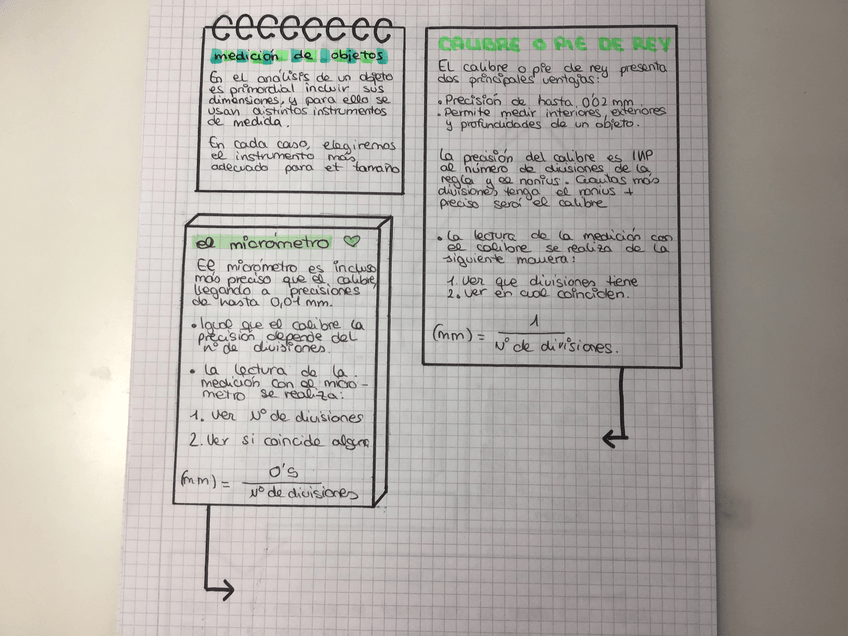 medición de objetos
En el análisis de un objeto
es primordial incluir sus
dimensiones, y para ello se
usan distintos instrumentos
de medida.
En cada caso, elegiremos
el instrumento más
adecuado para el tamaño
el micrómetro
El micrómetro es incluso
más preciso que el calibre,
llegando a precisiones
de hasta 0,01 mm.
• Igual que el calibre la
precisión depende del
nº de divisiones.
• La lectura de la
medición con el micró-
metro se realiza:
1. Ver Nº de divisiones
2. Ver si coincide alguna
(mm) = 0's
Nº de divisiones
CALIBRE O PIE DE REY
El calibre o pie de rey presenta
dos principales ventajas:
• Precisión de hasta 0'02 mm
• Permite medir interiores, exteriores
y profundidades de un objeto.
La precisión del calibre es INP
al número de divisiones de la
regla y el nonius. Cuantas más
divisiones tenga el nonius +
preciso será el calibre
• La lectura de la medición con
el calibre se realiza de la
siguiente manera:
1. Ver que divisiones tiene
2. Ver en cual coinciden.
(mm) = 1
Nº de divisiones.